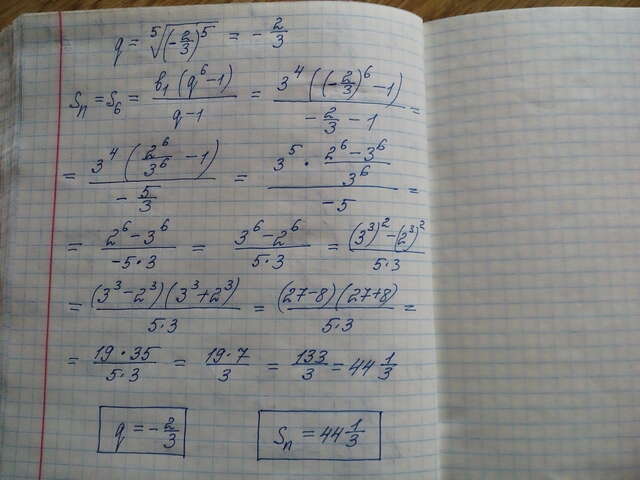 q = ⁵√((-2/3)⁵) = -2/3
Sₙ = S₆ = b₁(q⁶-1)/(q-1) = 3⁴((-2/3)⁶-1)/(-2/3-1) =
= 3⁴(2⁶/3⁶-1)/(-5/3) = (3⁵·(2⁶-3⁶)/3⁶)/(-5) =
= (2⁶-3⁶)/(-5·3) = (3⁶-2⁶)/(5·3) = ((3³)²-(2³)²)/(5·3)
= (3³-2³)(3³+2³)/(5·3) = (27-8)(27+8)/(5·3) =
= 19·35/(5·3) = 19·7/3 = 133/3 = 44 1/3
q = -2/3
Sₙ = 44 1/3